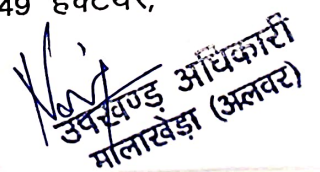 49 हेक्टेयर,
उपखण्ड़ अधिकारी
मालाखेड़ा (अलवर)